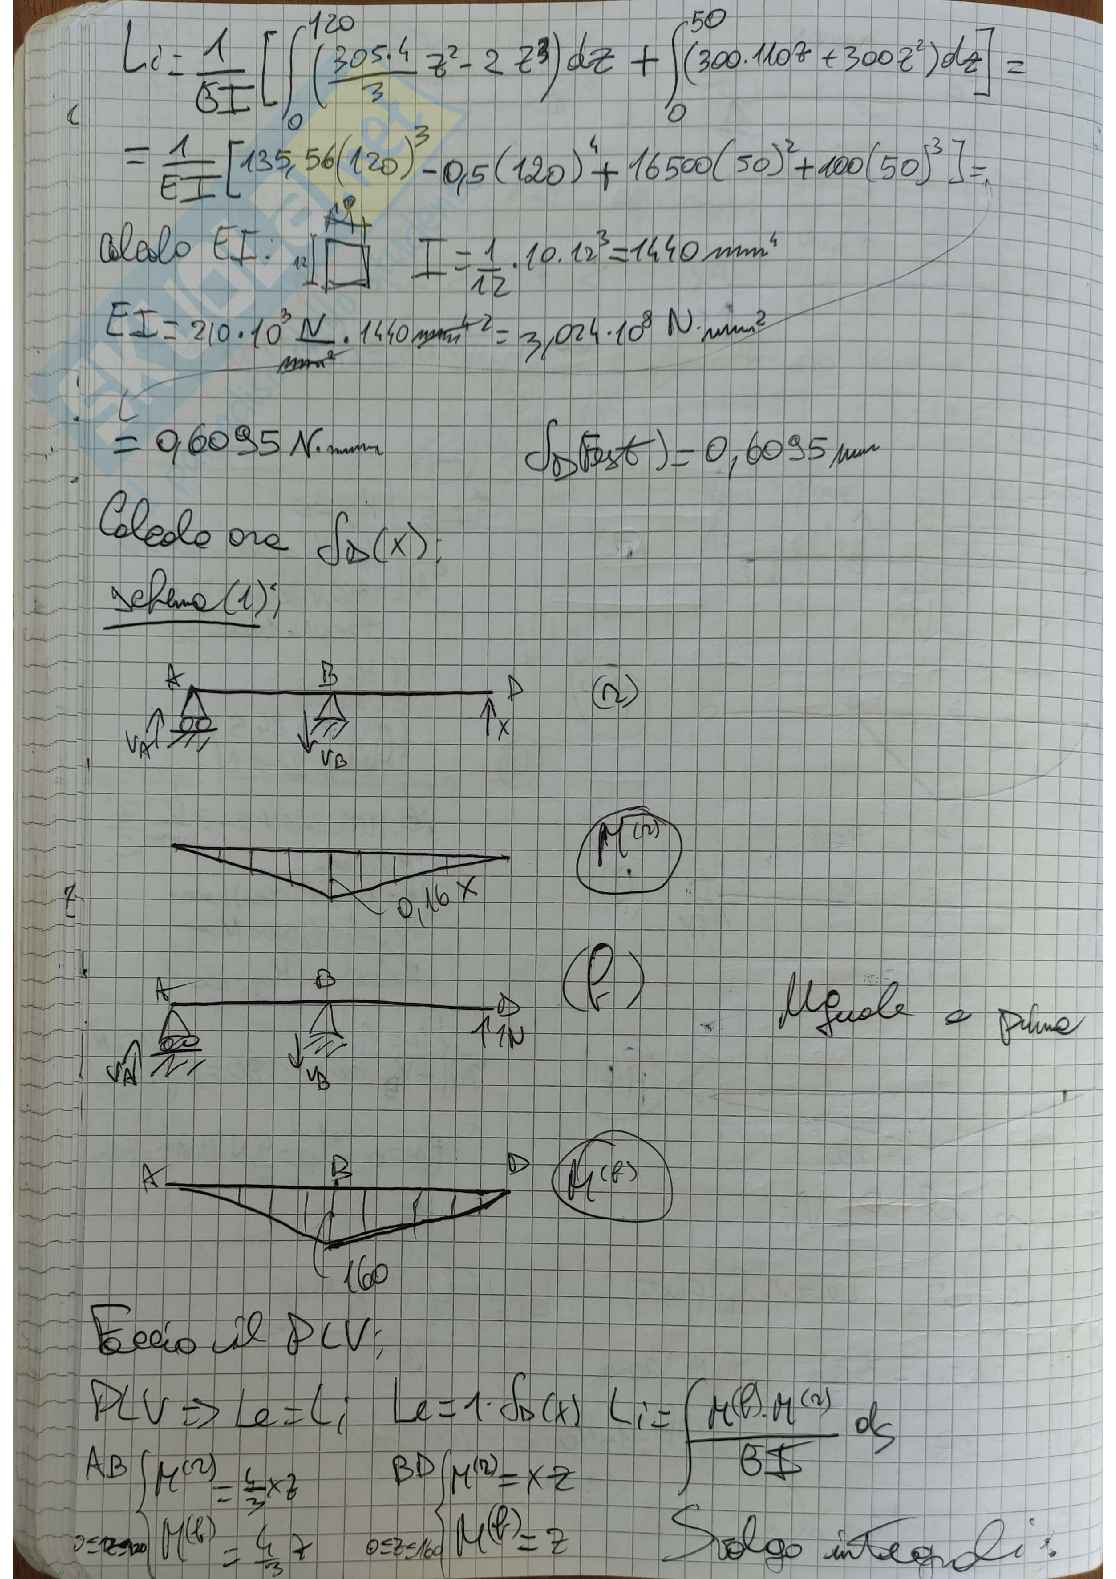 Li = 1/EI [∫₀¹²⁰ (305·4/3 z² - 2 z³) dz + ∫₀⁵⁰ (300·110z + 300z²) dz] =
= 1/EI [135,56(120)³ - 0,5(120)⁴ + 16500(50)² + 100(50)³] =
Calcolo EI: 12 10 I = 1/12 · 10 · 12³ = 1440 mm⁴
EI = 210·10³ N/mm² · 1440 mm⁴ ² = 3,024·10⁸ N·mm²
= 0,6095 N·mm δD(Fest) = 0,6095 mm
Calcolo ora δD(x):
schema (1):
A B D (r)
VA VB x
M⁽ʳ⁾
0,16 x
A B D (f) Uguale a prima
VA VB 1N
A B D M⁽ᶠ⁾
160
Faccio il PLV:
PLV => Le = Li Le = 1·δD(x) Li = ∫ M⁽ᶠ⁾·M⁽ʳ⁾/EI ds
AB { M⁽ʳ⁾ = 4/3 xz BD { M⁽ʳ⁾ = x z
0≤z≤120 M⁽ᶠ⁾ = 4/3 z 0≤z≤160 M⁽ᶠ⁾ = z Svolgo integrali: